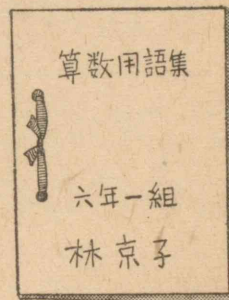 算数用語集
六年一組
林京子